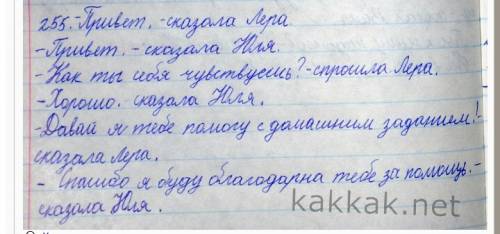 255.-Привет.-сказала Лера
-Привет.-сказала Юля.
-Как ты себя чувствуешь?-спросила Лера.
-Хорошо. сказала Юля.
-Давай я тебе помогу с домашним заданием!-
сказала Лера.
- Спасибо я буду благодарна тебе за помощь.-
сказала Юля.
kakkak.net